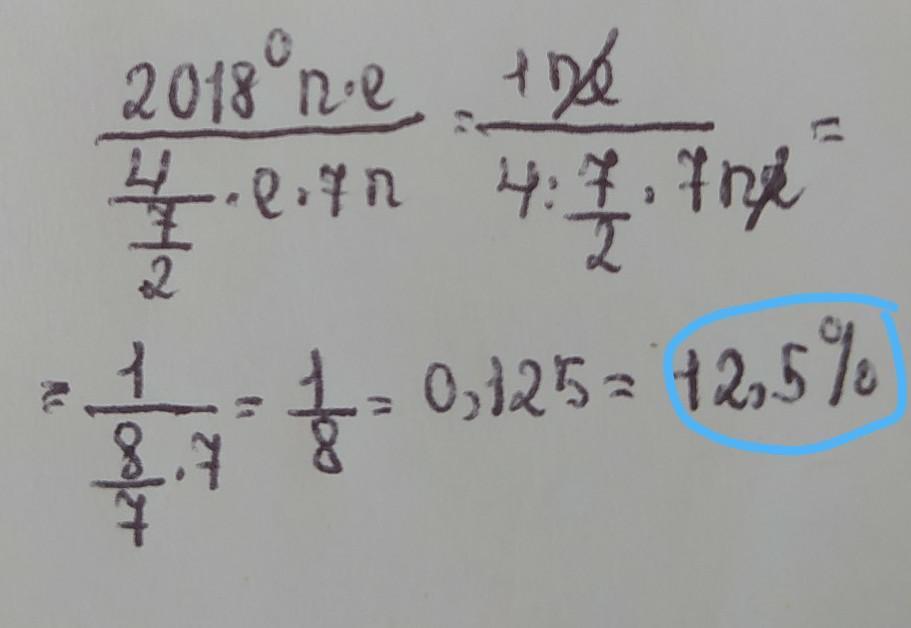 2018⁰ n·e / (4/(7/2) · e · 7n) = 1ne / (4 : 7/2 · 7ne) =
= 1 / (8/7 · 7) = 1/8 = 0,125 = 12,5%